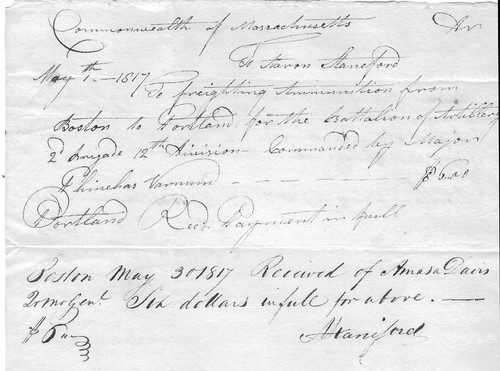 Commonwealth of Massachusetts Dr
To Aaron Staniford
May 1th - 1817 To freighting Ammunition from
Boston to Portland for the Battalion of Artillery
2d Brigade 12th Division - Commanded by Major
Phinehas Varnum - - - - $6.00
Portland Recd Payment in full
Boston May 30 1817 Recieved of Amasa Davis
Qr Mr Genl. Six dollars in full for above. -
$6 -
A Staniford